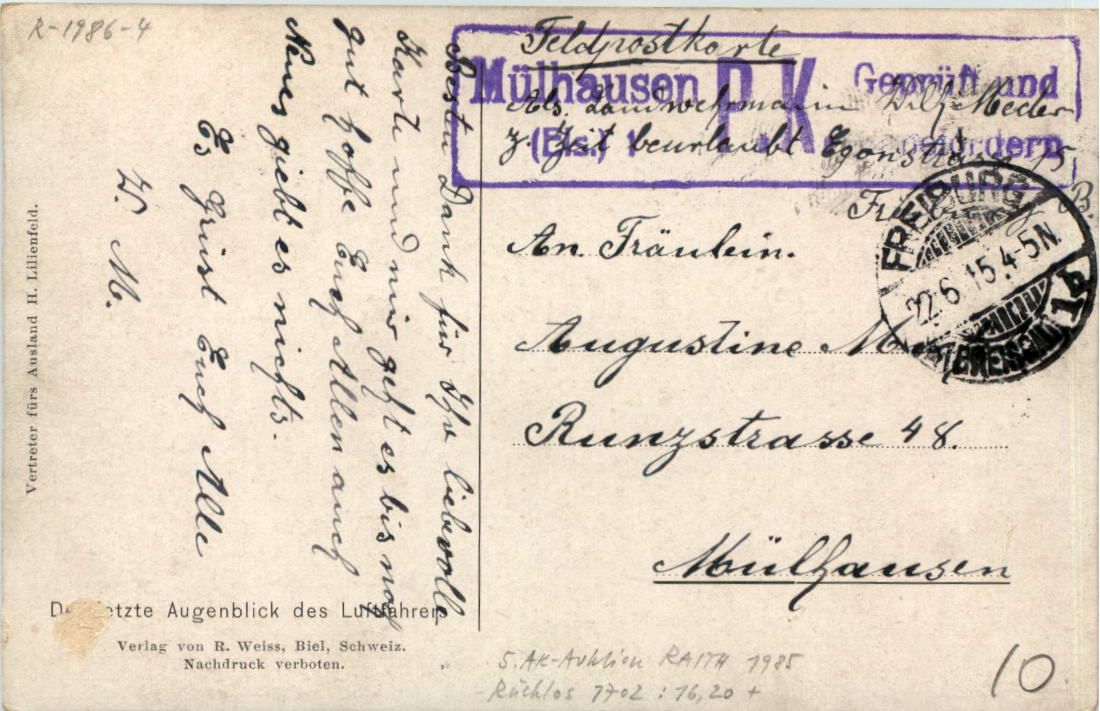 R-1986-4
Feldpostkarte
Mülhausen P.K. Geprüft und
(Els.) 1
Abs. Landwehrmann Wilh.
z. Zeit beurlaubt Egonstrasse
B.
FREIBURG
22.6.15.4-5N.
(BREISGAU) 1
An Fräulein.
Augustine
Runzstrasse 48.
Mülhausen
Besten Dank für Ihre liebevolle
Karte und mir geht es bis noch
gut hoffe Euch Allen auch
Neues giebt es nichts.
Es Grüsst Euch Alle
W. M.
Vertreter fürs Ausland H. Lilienfeld.
letzte Augenblick des Luftfahrers
Verlag von R. Weiss, Biel, Schweiz.
Nachdruck verboten.
5. AK-Auktion RAITH 1985
Rücklos 7702 : 16,20 +
10.